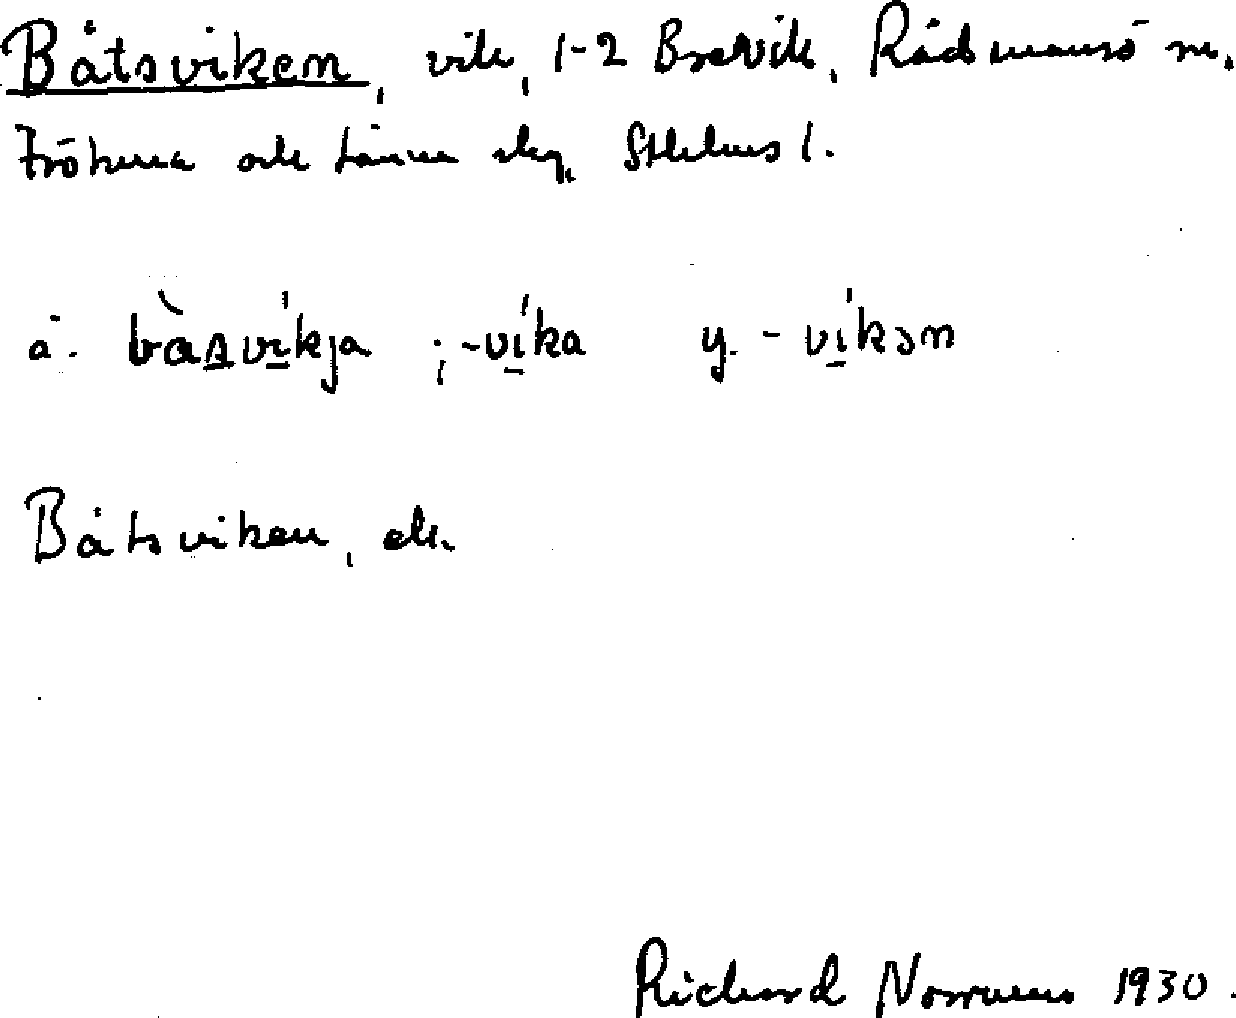 Båtsviken, vik, 1-2 Brevik, Rådmansö sn.
Frötuna och Länna skg, Sthlms l.
ä. bàsvíkja ; -víka y. - víkən
Båtsviken, ek.
Richard Norrman 1930.